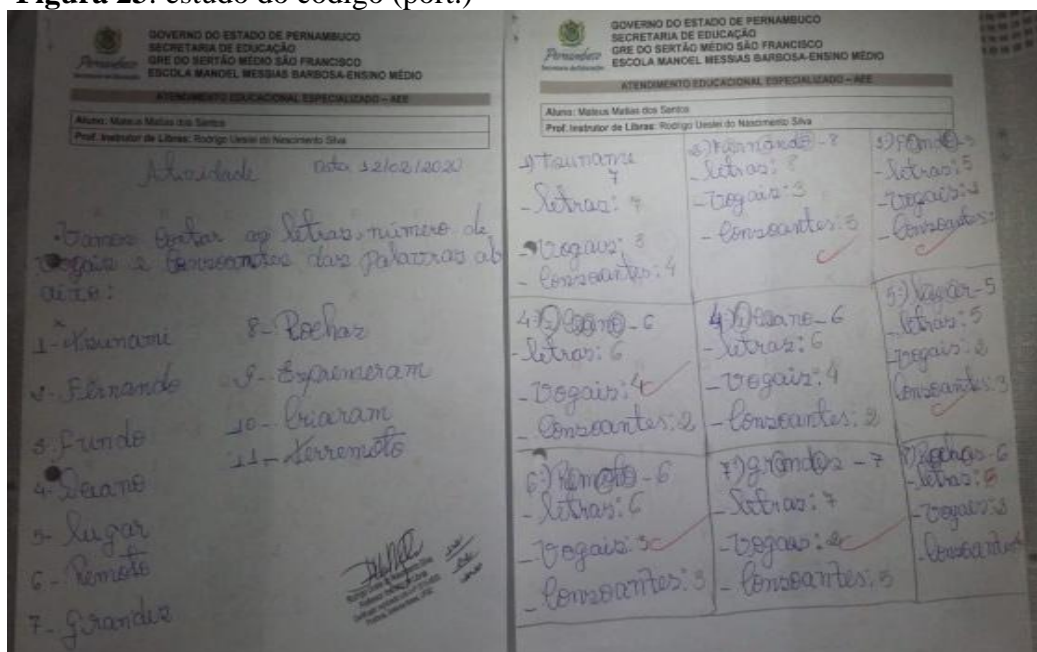 Figura 25: estudo do código (port.)
GOVERNO DO ESTADO DE PERNAMBUCO
SECRETARIA DE EDUCAÇÃO
GRE DO SERTÃO MÉDIO SÃO FRANCISCO
ESCOLA MANOEL MESSIAS BARBOSA-ENSINO MÉDIO
Pernambuco
ATENDIMENTO EDUCACIONAL ESPECIALIZADO – AEE
Aluno: Mateus Matias dos Santos
Prof. Instrutor de Libras: Rodrigo Ueslei do Nascimento Silva
Atividade Data 12/02/2020
Vamos contar as letras, número de
vogais e consoantes das palavras ab
aixo:
1- Tsunami
2- Fernando
3- Fundo
4- Oceano
5- Lugar
6- Remoto
7- Grandes
8- Rochas
9- Espremeram
10- Criaram
11- Terremoto
GOVERNO DO ESTADO DE PERNAMBUCO
SECRETARIA DE EDUCAÇÃO
GRE DO SERTÃO MÉDIO SÃO FRANCISCO
ESCOLA MANOEL MESSIAS BARBOSA-ENSINO MÉDIO
Pernambuco
ATENDIMENTO EDUCACIONAL ESPECIALIZADO – AEE
Aluno: Mateus Matias dos Santos
Prof. Instrutor de Libras: Rodrigo Ueslei do Nascimento Silva
1) Tsunami
7
- letras: 7
- Vogais: 3
- Consoantes: 4
2) Fernando - 8
- letras: 8
- Vogais: 3
- Consoantes: 5
- letras: 5
- Vogais: 2
- Consoantes:
4) Oceano - 6
- letras: 6
- Vogais: 4
- Consoantes: 2
4) Oceano - 6
- letras: 6
- Vogais: 4
- Consoantes: 2
5) Lugar - 5
- letras: 5
- Vogais: 2
Consoantes: 3
6) Remoto - 6
- letras: 6
- Vogais: 3
- Consoantes: 3
7) grandes - 7
- letras: 7
- Vogais: 2
- Consoantes: 5
8) Rochas - 6
- letras: 6
- Vogais:
- Consoantes